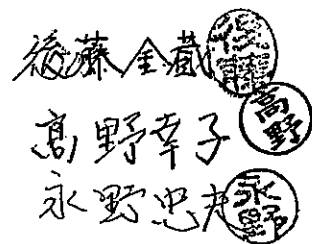 後藤金蔵 後藤
高野幸子 高野
永野忠夫 永野